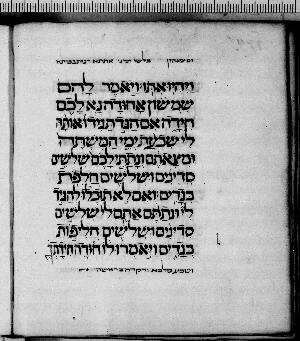 ויהיו אתו ויאמר להם
שמשון אחודה נא לכם
חידה אם הגד תגידו אותה
לי שבעת ימי המשתה
ומצאתם ונתתי לכם שלשים
סדינים ושלשים חלפת
בגדים ואם לא תוכלו להגיד
לי ונתתם אתם לי שלשים
סדינים ושלשים חליפות
בגדים ויאמרו לו חודה חידתך